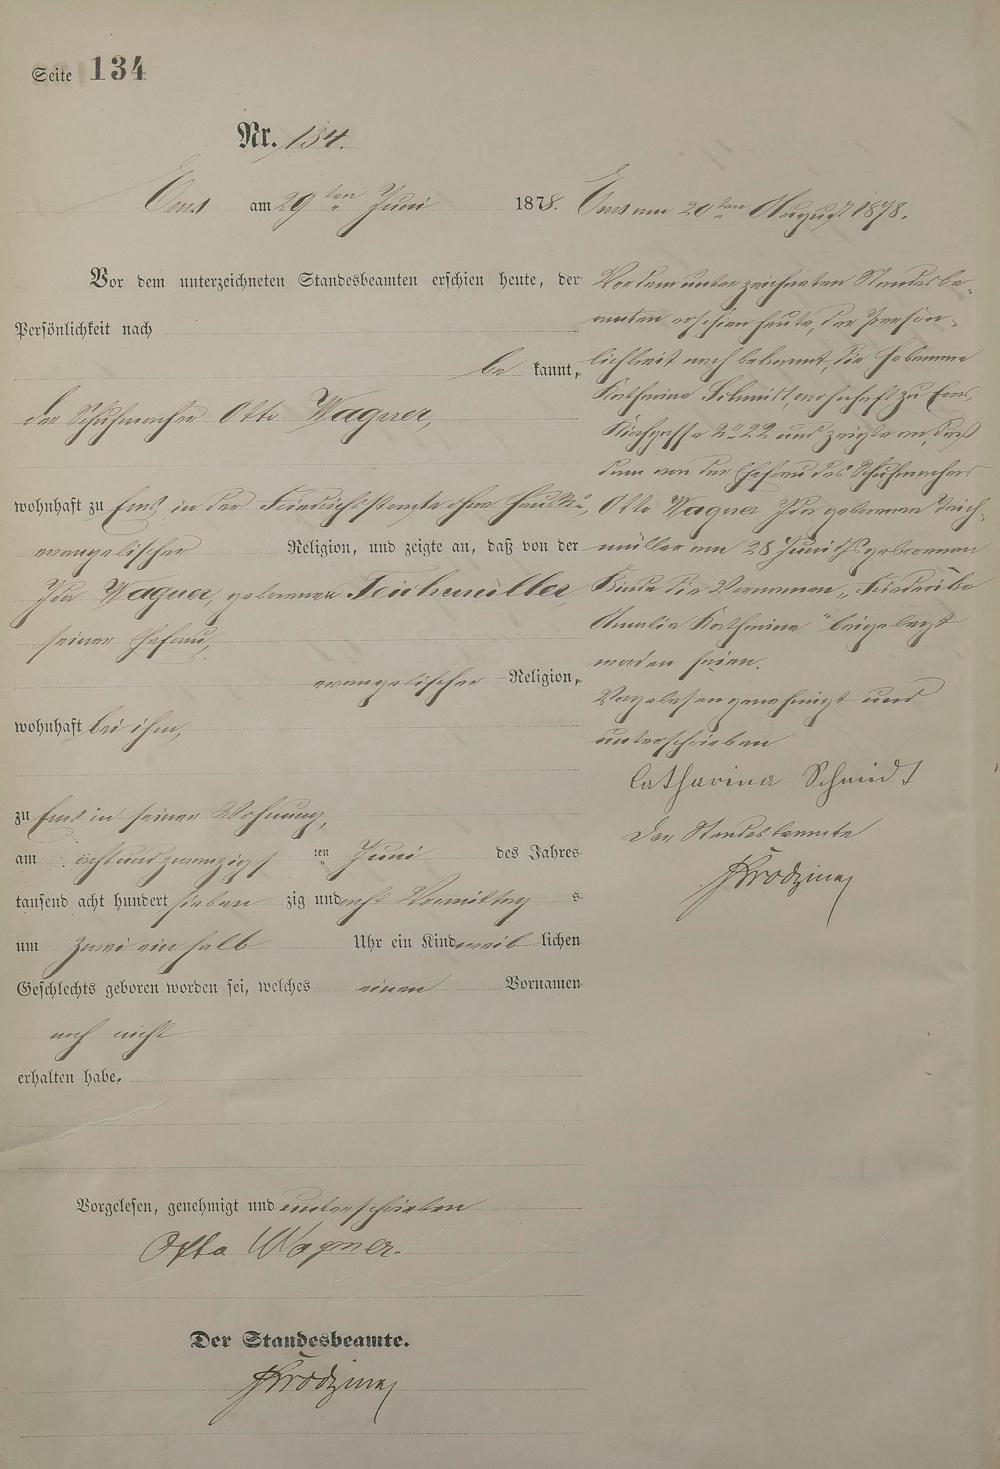 Seite 134
Nr. 134.
Ems am 29ten Juni 1878.
Vor dem unterzeichneten Standesbeamten erschien heute, der
Persönlichkeit nach
be kannt,
der Schuhmacher Otto Wagner,
wohnhaft zu Ems in der Friedrichsstraße ohne Haus No,
evangelischer Religion, und zeigte an, daß von der
Ida Wagner, geborenen Teichmüller,
seiner Ehefrau,
evangelischer Religion,
wohnhaft bei ihm,
zu Ems in seiner Wohnung,
am achtundzwanzigs ten Juni des Jahres
tausend acht hundert sieben zig und acht Vormittag s
um zwei ein halb Uhr ein Kind weib lichen
Geschlechts geboren worden sei, welches einen Vornamen
noch nicht
erhalten habe.
Vorgelesen, genehmigt und unterschrieben
Otto Wagner.
Der Standesbeamte.
Ems am 20ten August 1878.
Vor dem unterzeichneten Standesbe-
amten erschien heute, der Persön-
lichkeit nach bekannt, die Hebamme
Katharina Schmidt, wohnhaft zu Ems,
Kirchgasse No 22 und zeigte an, daß
dem von der Ehefrau des Schuhmachers
Otto Wagner Ida geborenen Teich-
müller am 28 Juni d Js geborenen
Kinde die Vornamen "Friederike
Amalie Katharina" beigelegt
worden seien.
Vorgelesen genehmigt und
unterschrieben
Catharina Schmidt
Der Standesbeamte